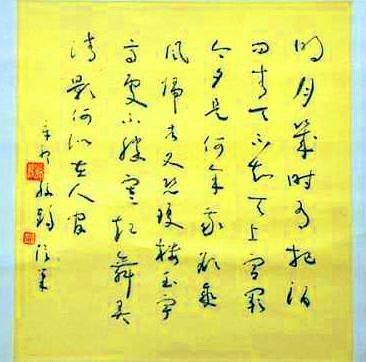 明月幾時有把酒
問青天不知天上宮闕
今夕是何年我欲乘
風歸去又恐瓊樓玉宇
高處不勝寒起舞弄
清影何似在人間